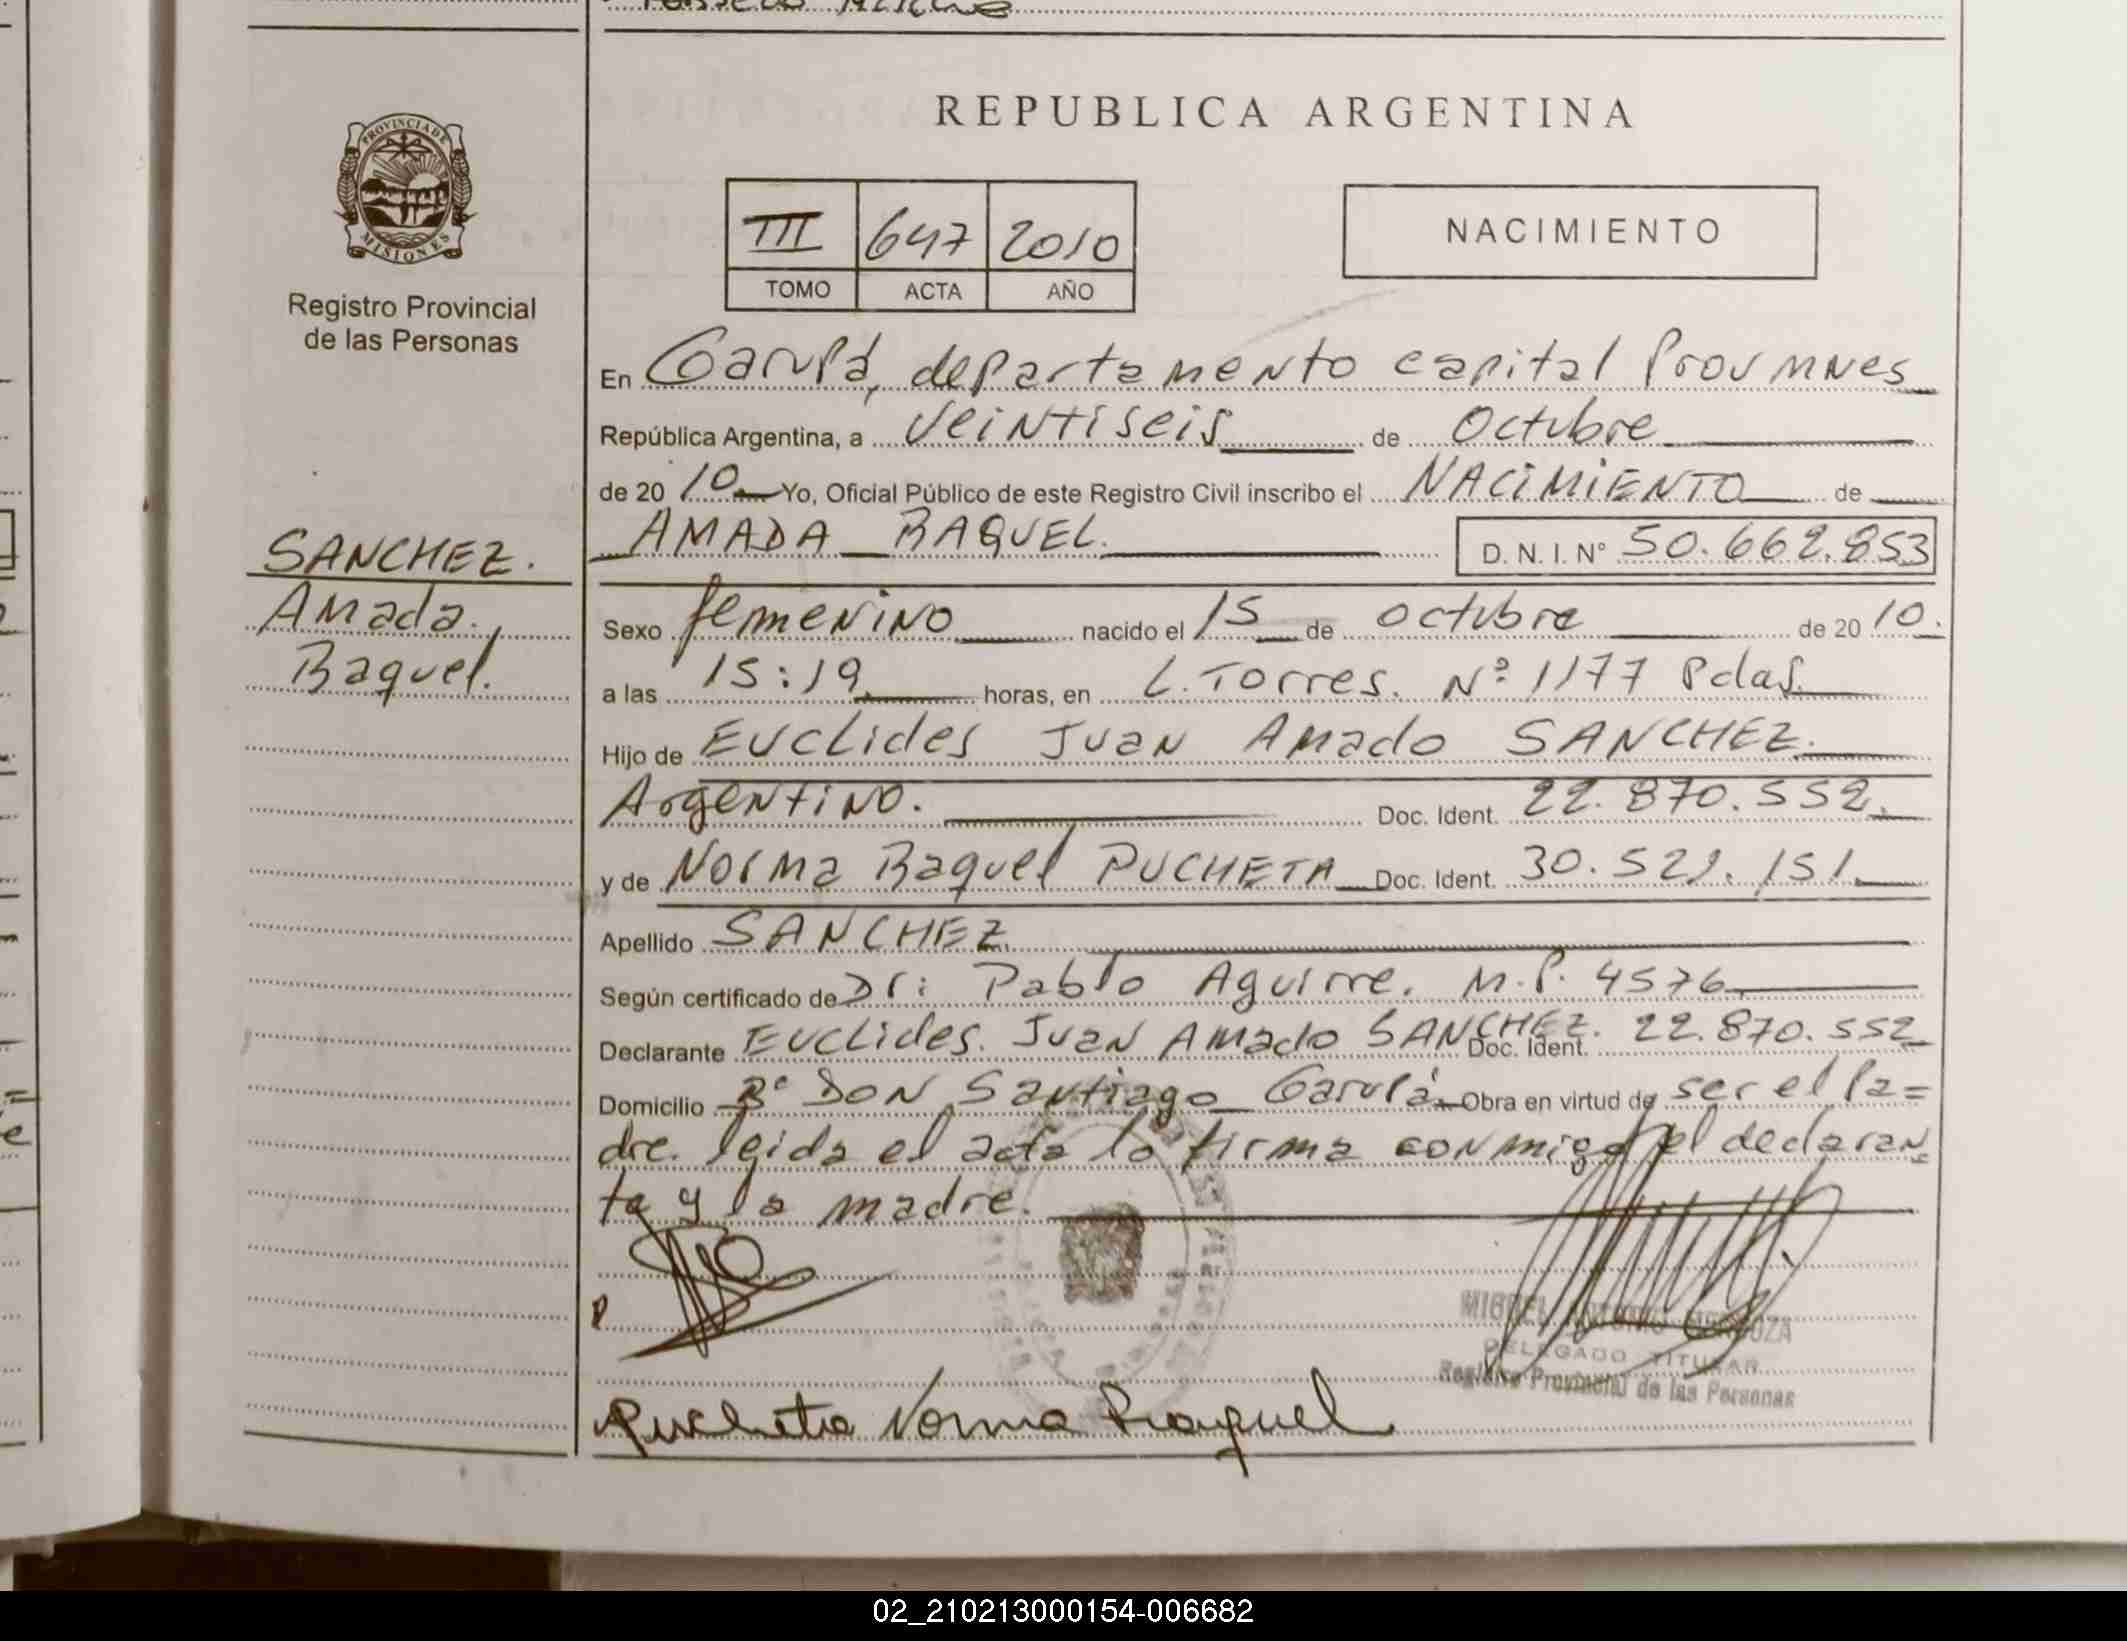 REPUBLICA ARGENTINA
PROVINCIA DE
MISIONES
Registro Provincial
de las Personas
III 647 2010
TOMO ACTA AÑO
NACIMIENTO
En Garupá, departamento capital Prov Mnes
República Argentina, a Veintiseis de Octubre
de 20 10 Yo, Oficial Público de este Registro Civil inscribo el NACIMIENTO de
AMADA RAQUEL. D. N. I. N° 50.662.853
SANCHEZ.
Amada.
Raquel.
Sexo femenino nacido el 15 de octubre de 20 10.
a las 15:19 horas, en L. Torres. Nº 1177 Pdas.
Hijo de Euclides Juan Amado SANCHEZ.
Argentino. Doc. Ident. 22.870.552.
y de Norma Raquel PUCHETA Doc. Ident. 30.521.151.
Apellido SANCHEZ
Según certificado de Dr: Pablo Aguirre. M.P. 4576
Declarante Euclides. Juan Amado SANCHEZ. Doc. Ident. 22.870.552
Domicilio Bº DON Santiago Garupá. Obra en virtud de ser el Pa=
dre. leida el acta lo firma conmigo el declaran
te y la madre.
MIGUEL ANTONIO MENDOZA
DELEGADO TITULAR
Registro Provincial de las Personas
Pucheta Norma Raquel
02_210213000154-006682